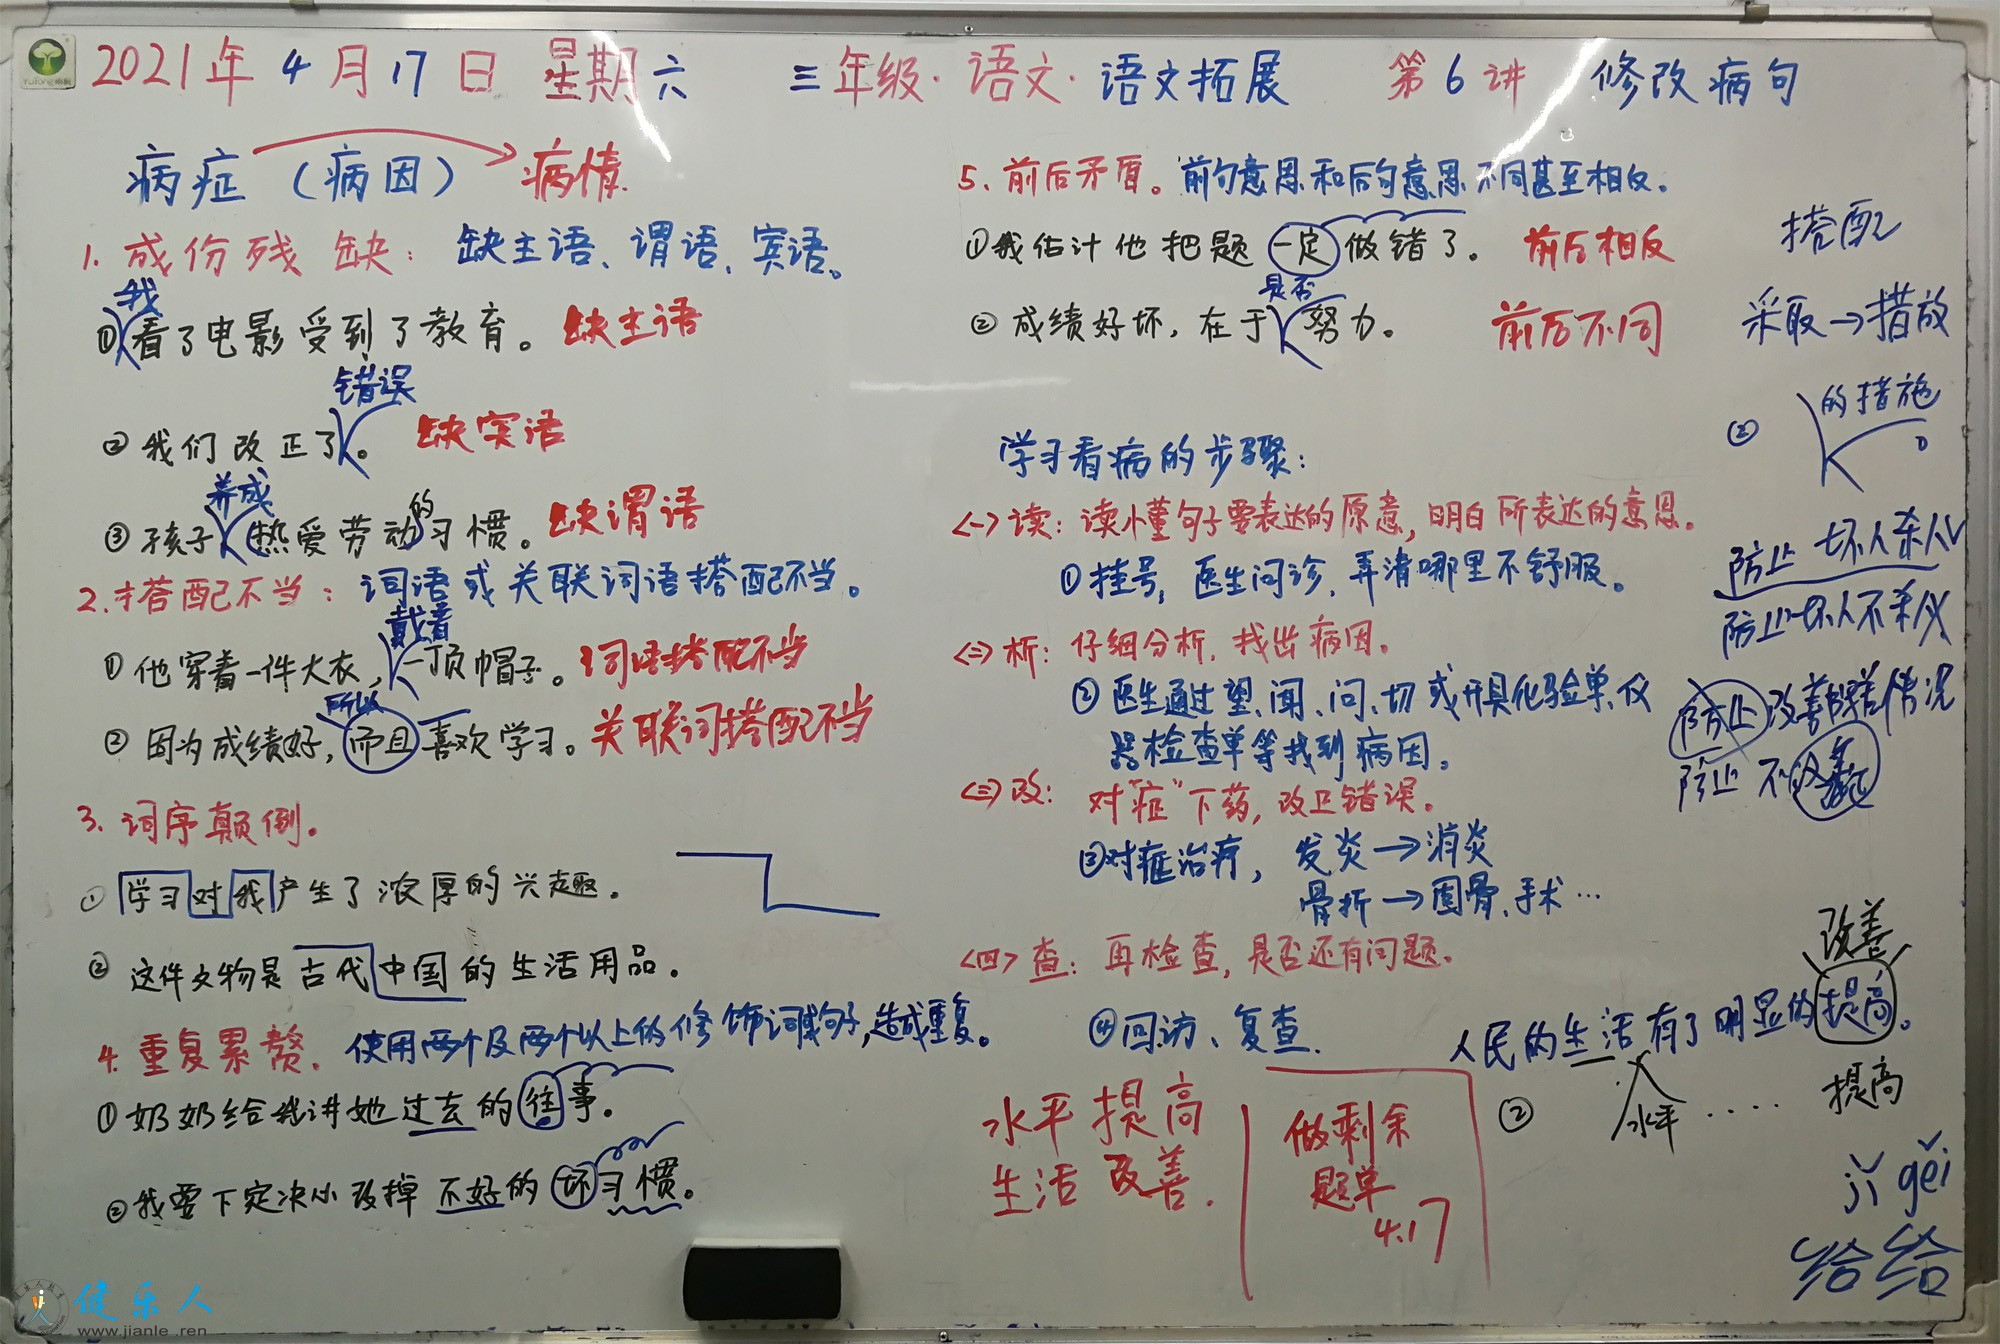 2021年4月17日 星期六 三年级·语文·语文拓展 第6讲 修改病句
病症（病因） 病情
1. 成份残缺：缺主语、谓语、宾语。
我
①看了电影受到了教育。 缺主语
错误
②我们改正了。 缺宾语
养成 的
③孩子热爱劳动习惯。 缺谓语
2. 搭配不当：词语或关联词语搭配不当。
戴着
①他穿着一件大衣，一顶帽子。 词语搭配不当
所以
②因为成绩好，而且喜欢学习。 关联词搭配不当
3. 词序颠倒。
①学习对我产生了浓厚的兴趣。
②这件文物是古代中国的生活用品。
4. 重复累赘. 使用两个及两个以上的修饰词或句子,造成重复。
①奶奶给我讲她过去的往事。
②我要下定决心改掉不好的坏习惯。
5. 前后矛盾。前句意思和后句意思不同甚至相反。
①我估计他把题一定做错了。 前后相反
是否
②成绩好坏，在于努力。 前后不同
学习看病的步骤：
<一>读：读懂句子要表达的原意，明白所表达的意思。
①挂号，医生问诊，弄清哪里不舒服。
<二>析：仔细分析，找出病因。
②医生通过望、闻、问、切或开具化验单、仪
器检查单等找到病因。
<三>改：对"症"下药，改正错误。
③对症治疗，发炎→消炎
骨折→固骨、手术…
<四>查：再检查，是否还有问题。
④回访、复查.
水平提高
生活改善.
做剩余
题单
4.17
搭配
采取→措放
② 的措施。
防止 坏人杀人√
防止坏人不杀人
防止 改善 情况
防止 不
改善
人民的生活有了明显的提高。
② 水平 ····· 提高
jǐ gěi
给 给
健乐人
www.jianle.ren